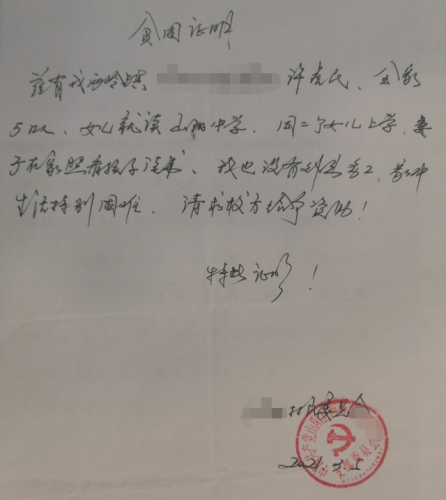 贫困证明
兹有我西岭镇 许虎民、全家
5口人、女儿就读山阳中学.因二个女儿上学,妻
子在家照看孩子读书、我也没有到出务工,家中
生活特别困难.请求校方给争资助!
特此证明!
村民委员会
2021.3.5